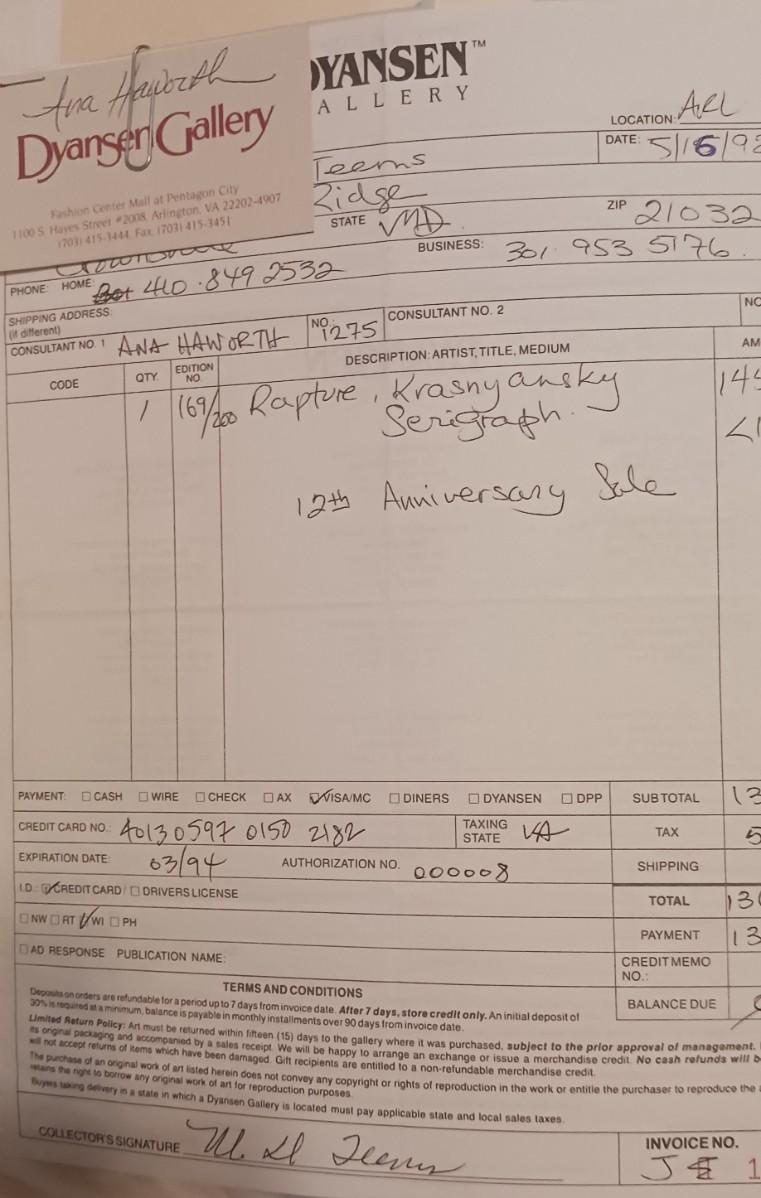 Ana Haworth
Dyansen Gallery
Fashion Center Mall at Pentagon City
1100 S. Hayes Street #2008, Arlington, VA 22202-4907
(703) 415-3444 Fax (703) 415-3451
DYANSEN™
GALLERY
LOCATION: ARL
DATE: 5/16/92
Teems
Ridge
STATE MD ZIP 21032
PHONE: HOME: 410.849 2532 BUSINESS: 301.953 5176
SHIPPING ADDRESS:
(if different)
CONSULTANT NO. 1 ANA HAWORTH NO. 1275 CONSULTANT NO. 2 NO
CODE QTY. EDITION NO. DESCRIPTION: ARTIST, TITLE, MEDIUM AM
1 169/200 Rapture, Krasnyansky 145
Serigraph.
12th Anniversary Sale
PAYMENT: CASH WIRE CHECK AX VISA/MC DINERS DYANSEN DPP SUBTOTAL 13
CREDIT CARD NO.: 4013 0597 0150 2182 TAXING STATE VA TAX 5
EXPIRATION DATE: 03/94 AUTHORIZATION NO. 000008 SHIPPING
I.D.: CREDIT CARD / DRIVERS LICENSE TOTAL 13
NW RT WI PH PAYMENT 13
AD RESPONSE PUBLICATION NAME: CREDIT MEMO NO.:
TERMS AND CONDITIONS BALANCE DUE
Deposits on orders are refundable for a period up to 7 days from invoice date. After 7 days, store credit only. An initial deposit of
30% is required at a minimum, balance is payable in monthly installments over 90 days from invoice date.
Limited Return Policy: Art must be returned within fifteen (15) days to the gallery where it was purchased, subject to the prior approval of management.
its original packaging and accompanied by a sales receipt. We will be happy to arrange an exchange or issue a merchandise credit. No cash refunds will b
will not accept returns of items which have been damaged. Gift recipients are entitled to a non-refundable merchandise credit.
The purchase of an original work of art listed herein does not convey any copyright or rights of reproduction in the work or entitle the purchaser to reproduce the
retains the right to borrow any original work of art for reproduction purposes.
Buyers taking delivery in a state in which a Dyansen Gallery is located must pay applicable state and local sales taxes.
COLLECTOR'S SIGNATURE Teems INVOICE NO.
J 1